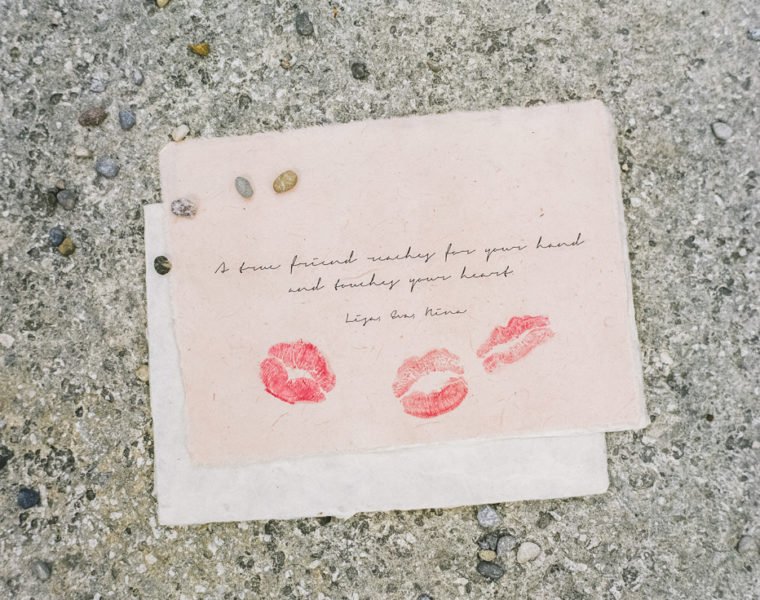 A true friend reaches for your hand
and touches your heart
Lisa, Eva, Nina